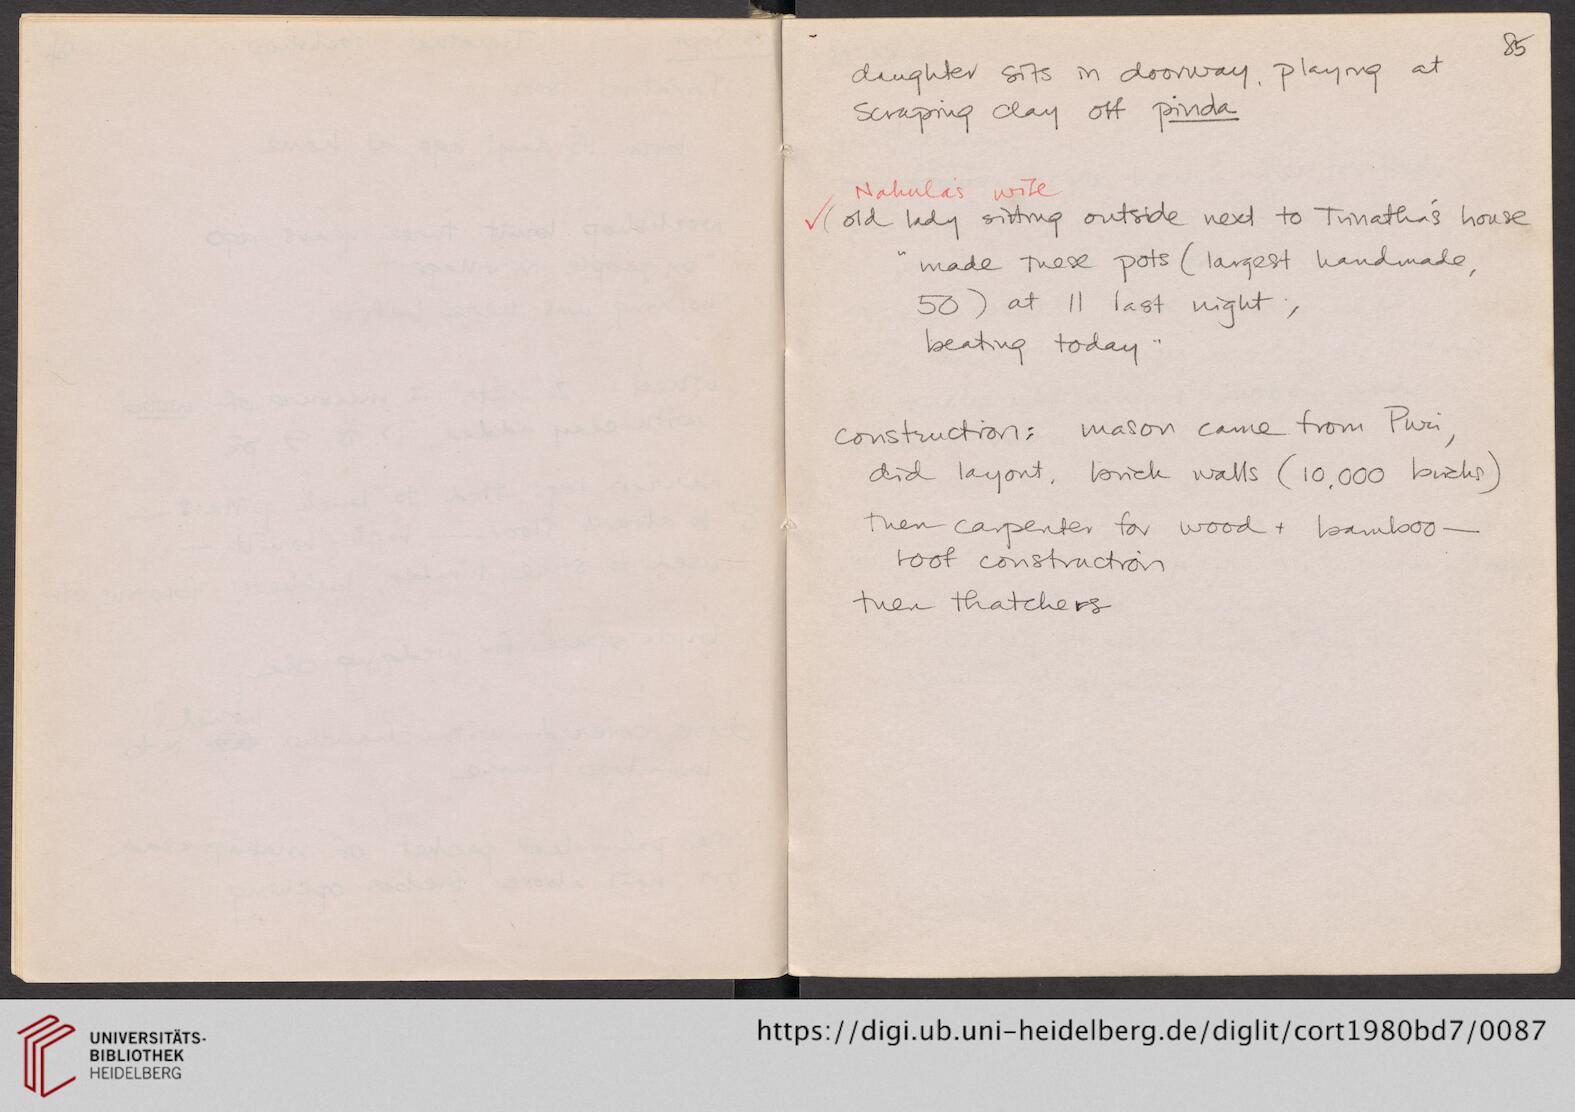 85
daughter sits in doorway, playing at
scraping clay off pinda
Nakula's wife
✓( old lady sitting outside next to Trinatha's house
"made these pots (largest handmade,
50) at 11 last night,
beating today"
construction: mason came from Puri,
did layout, brick walls (10,000 bricks)
then carpenter for wood + bamboo —
roof construction
then thatchers
UNIVERSITÄTS-
BIBLIOTHEK
HEIDELBERG
https://digi.ub.uni-heidelberg.de/diglit/cort1980bd7/0087